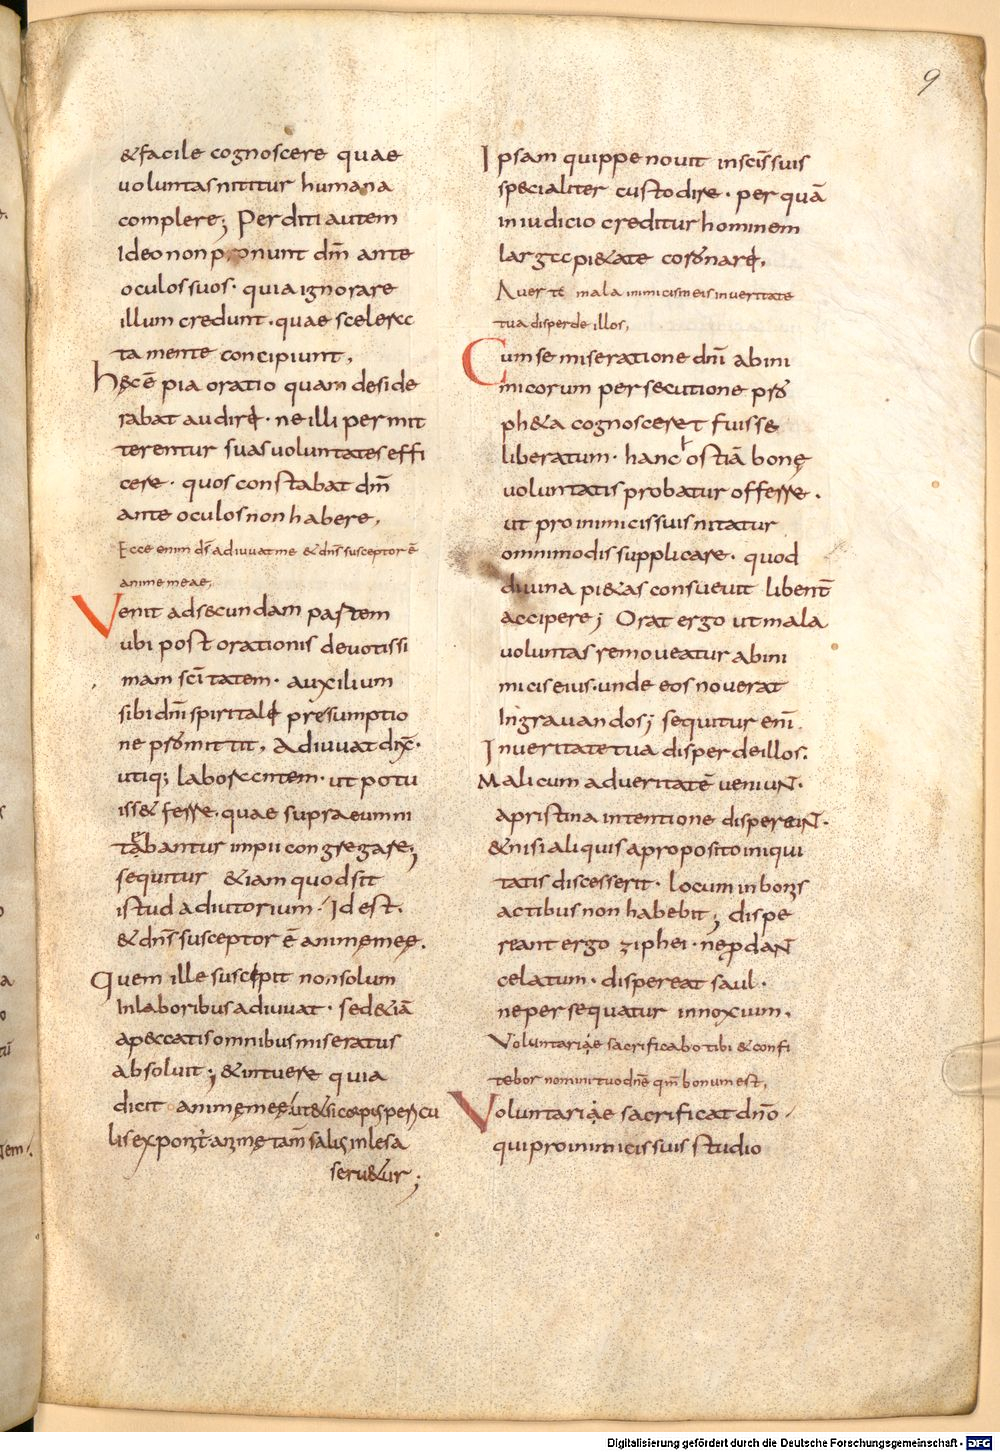 9
&facile cognoscere quae
uoluntas nititur humana
complere; Perditi autem
Ideo non p onunt dm̄ ante
oculos suos· quia ignorare
illum credunt· quae scelera
ta mente concipiunt,
hęc ē pia oratio quam deside
rabat audirę· ne illi permit
terentur suas uoluntates effi
cere· quos constabat dm̄
ante oculos non habere,
Ecce enim ds̄ adiuuat me & dns̄ susceptor ē
anime meae;
Venit ad secundam partem
ubi post orationis deuotissi
mam sc̄itatem· auxilium
sibi dn̄i spiritalę presumptio
ne promittit, Adiuuat dix̄·
utiq; laborantem· ut potu
iss& ferre· quae supra eum ni
tebantur impii congregare;
sequitur &iam quod sit
istud adiutorium· Id est·
& dns̄ susceptor ē animę meę.
Quem ille suscępit non solum
In laboribus adiuuat· sed &iā
a peccatis omnibus miseratus
absoluit; & intuere quia
dicit animę meę ut & si corpus periculis
exponat anima tam̄ salus inlesa
seru&ur;
Ipsam quippe nouit in scīs suis
specialiter custodire· per quā
in iudicio creditur hominem
larga pi&ate coronarę,
Auerte mala inimicis meis in ueritate
tua disperde illos,
Cum se miseratione dn̄i ab ini
micorum persecutione pro
ph&a cognosceret fuisse
liberatum· hanc hostiā bonę
uoluntatis probatur offerre·
ut pro inimicis suis nitatur
omnimodis supplicare· quod
diuina pi&as consueuit libent̄
accipere; Orat ergo ut mala
uoluntas remoueatur ab ini
micis eius· unde eos nouerat
Ingrauandos; sequitur eni̅
In ueritate tua disperde illos.
Mali cum ad ueritatē ueniuN·
a pristina intentione dispereiN·
& nisi aliquis a proposito iniqui
tatis discesserit· locum in bonis
actibus non habebit; dispe
reant ergo ziphei· ne ꝓdaN
celatum· dispereat saul·
ne persequatur innoxium.
Voluntariae sacrificabo tibi & confi
tebor nomini tuo dnē qm̄ bonum est,
Voluntariae sacrificat dn̄o
qui pro inimicis suis studio
Digitalisierung gefördert durch die Deutsche Forschungsgemeinschaft - DFG